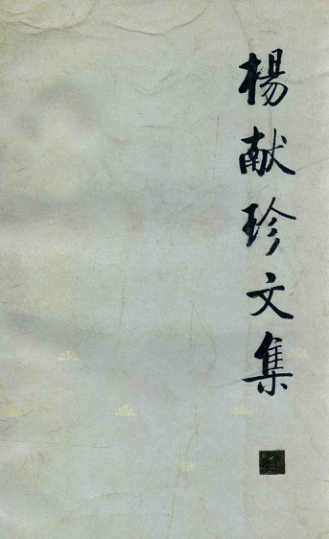 楊献珍文集